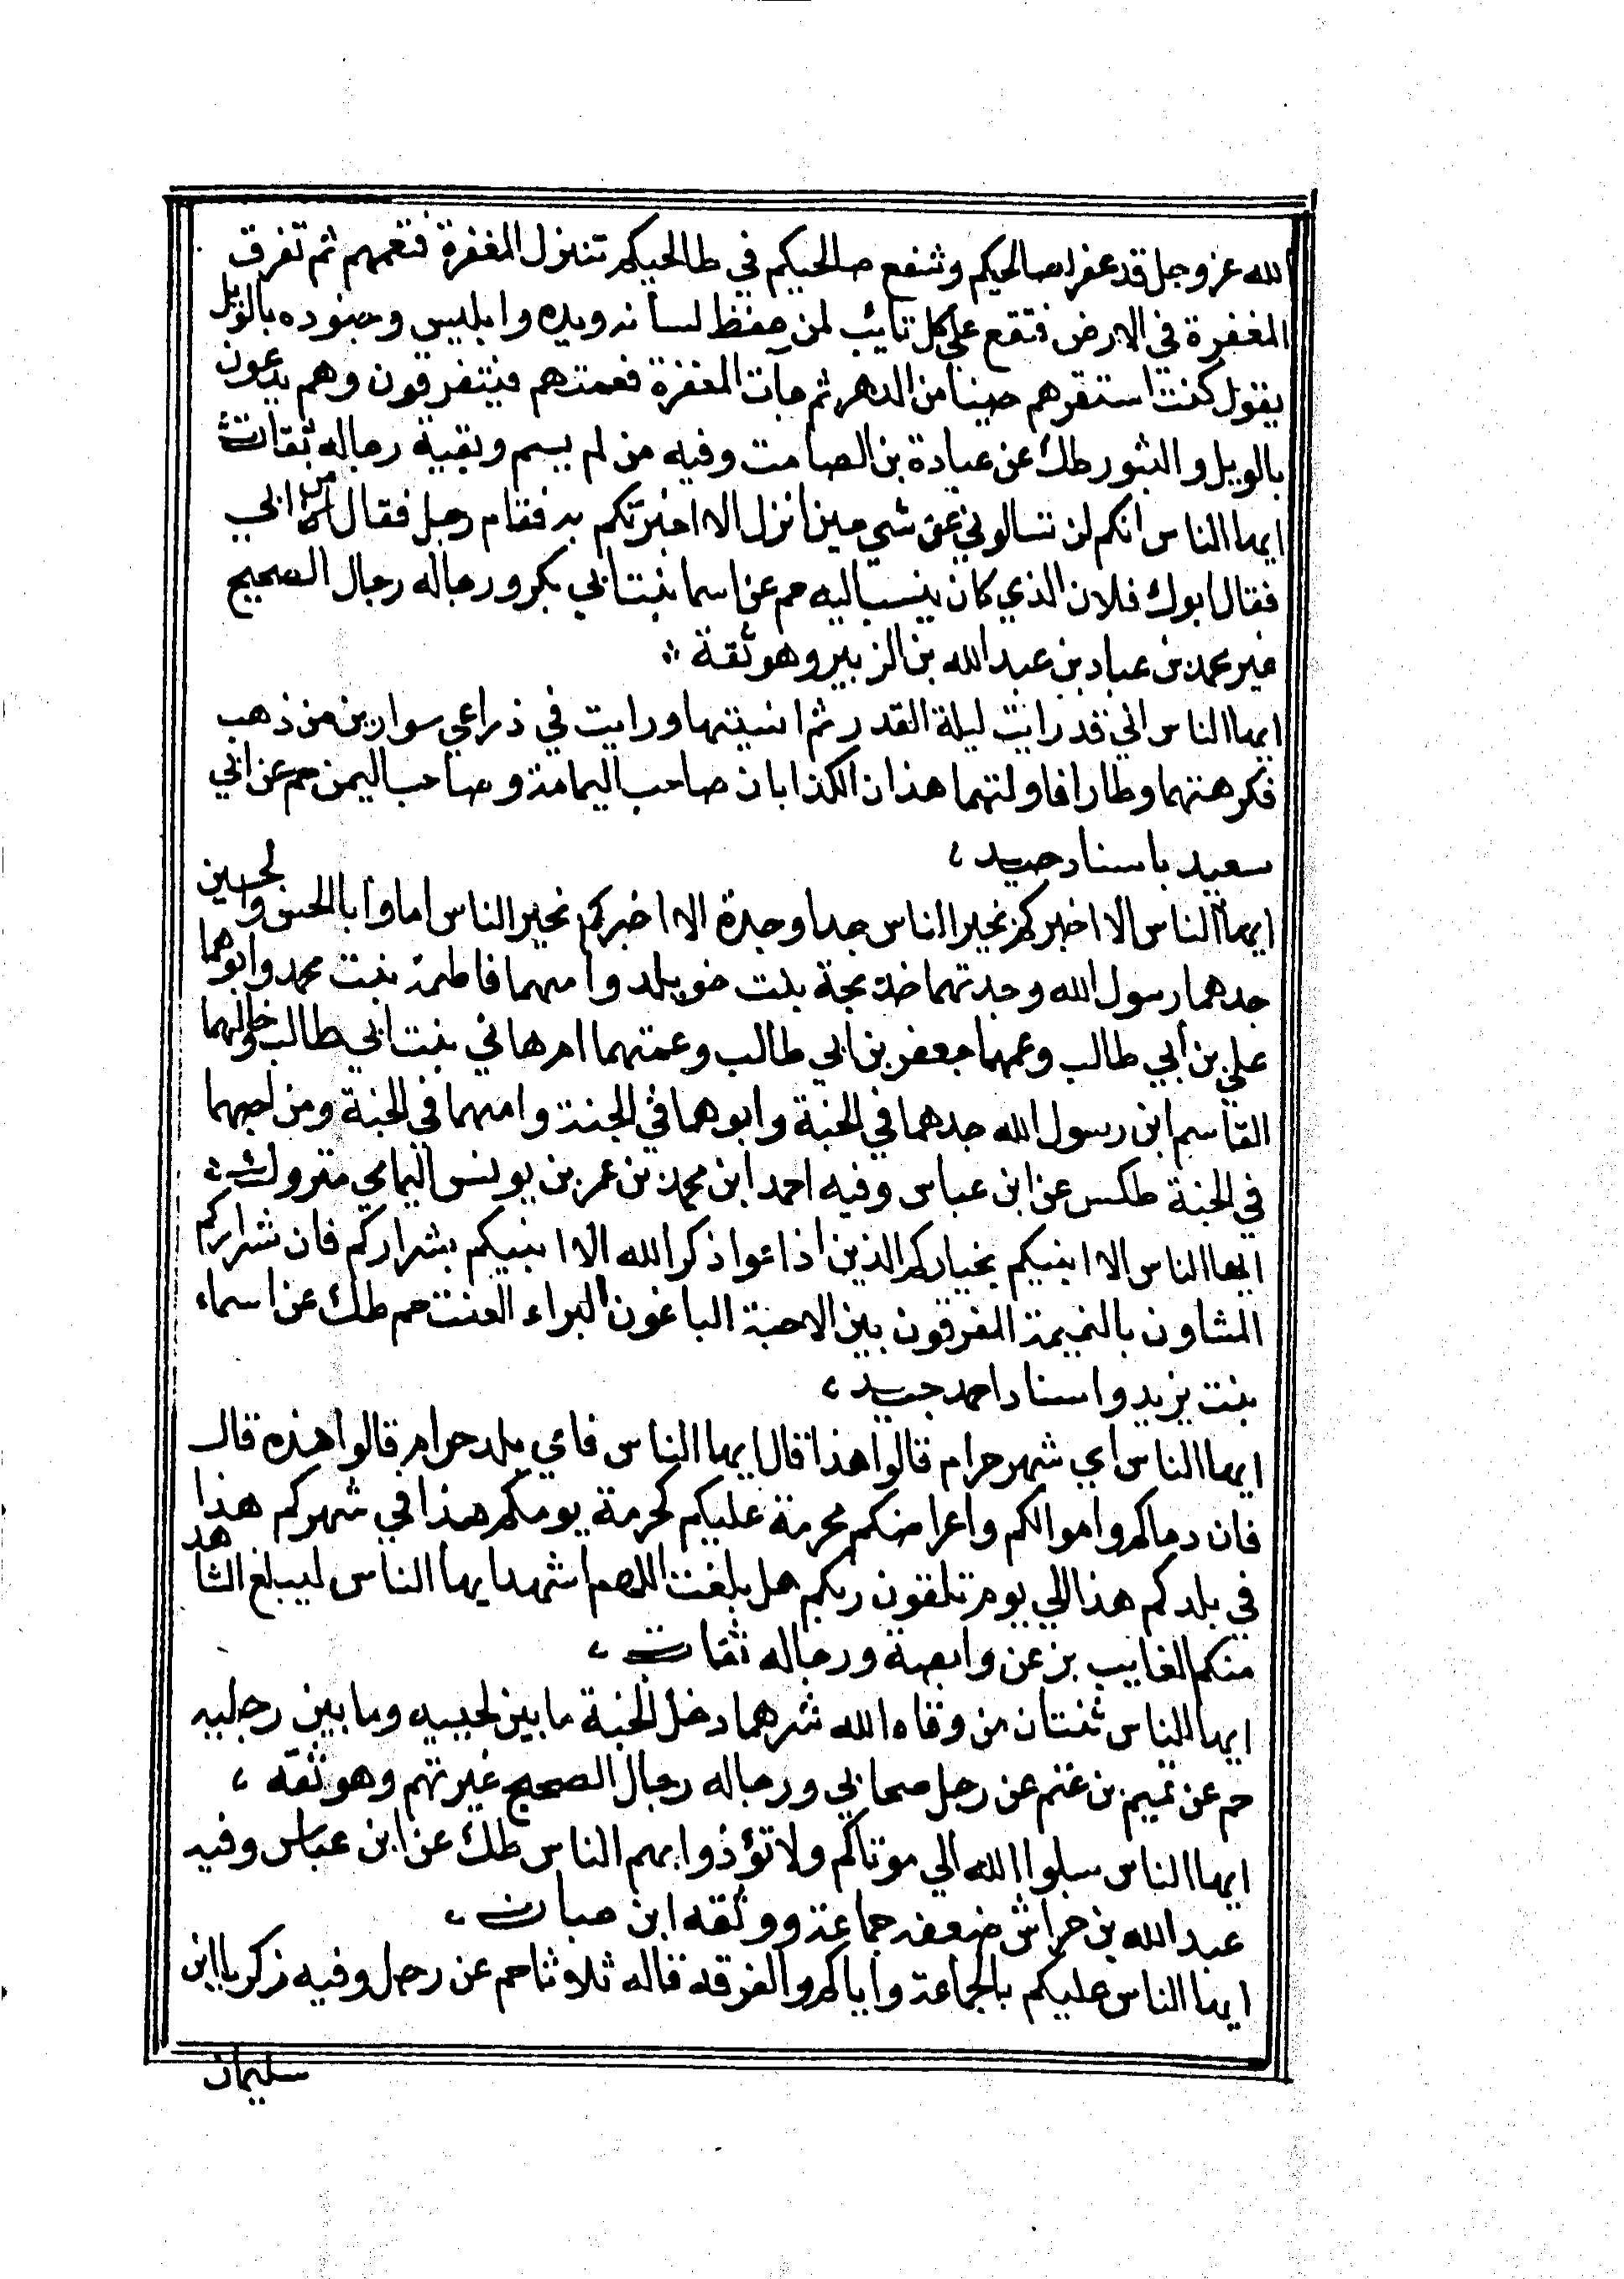 الله عز وجل قد غفر لصالحيكم وشفع صالحيكم في طالحيكم تنزل المغفرة فتعمهم ثم تفرق
المغفرة في الارض فتقع علي كل تايب لمن حفظ لسانه ويده وابليس وجنوده بالويل
يقول كنت استفزهم حينا من الدهر ثم جآت المغفرة فعمتهم فيتفرقون وهم يدعون
بالويل والثبور طك عن عبادة بن الصامت وفيه من لم يسم وبقية رجاله ثقات
ايها الناس انكم لن تسالوني عن شي حين انزل الا اخبرتكم به فقام رجل فقال من ابي
فقال ابوك فلان الذي كان ينسب اليه حم عن اسما بنت ابي بكر ورجاله رجال الصحيح
غير محمد بن عباد بن عبد الله بن الزبير وهو ثقة
ايها الناس اني قد رايت ليلة القدر ثم انسيتها ورايت في ذراعي سوارين من ذهب
فكرهتهما وطارا فاولتهما هذان الكذابان صاحب اليمامة وصاحب اليمن حم عن ابي
سعيد باسناد جيد ،
ايها الناس الا اخبركم بخير الناس جدا وجدة الا اخبركم بخير الناس اما وابا الحسن والحسين
جدهما رسول الله وجدتهما خديجة بنت خويلد وامهما فاطمة بنت محمد وابوهما
علي بن أبي طالب وعمهما جعفر بن ابي طالب وعمتهما ام هاني بنت ابي طالب وخالهما
القاسم ابن رسول الله جدهما في الجنة وابوهما في الجنة وامهما في الجنة ومن احبهما
في الجنة طكس عن ابن عباس وفيه احمد ابن محمد بن عمر بن يونس اليمامي متروك ،
ايها الناس الا انبيكم بخياركم الذين اذا عوا ذكر الله الا انبيكم بشراركم فان شراركم
المشاون بالنميمة المفرقون بين الاحبة الباغون البراء العنت حم طك عن اسماء
بنت يزيد واسناد احمد جيد ،
ايها الناس اي شهر حرام قالوا هذا قال ايها الناس فاي بلد حرام قالوا هذه قال
فان دماكم واموالكم واعراضكم محرمة عليكم كحرمة يومكم هذا في شهركم هذا
في بلدكم هذا الي يوم تلقون ربكم هل بلغت اللهم اشهد ايها الناس ليبلغ الشاهد
منكم الغايب بز عن وابصة ورجاله ثقات ،
ايها الناس ثنتان من وقاه الله شرهما دخل الجنة ما بين لحييه وما بين رجليه
حم عن تميم بن غنم عن رجل صحابي ورجاله رجال الصحيح غير تميم وهو ثقة ،
ايها الناس سلوا الله الي موتاكم ولا تؤذوا بهم الناس طك عن ابن عباس وفيه
عبد الله بن خراش ضعفه جماعة ووثقه ابن حبان ،
ايها الناس عليكم بالجماعة واياكم والفرقه قاله ثلاثا حم عن رجل وفيه زكريا ابن
سليمان